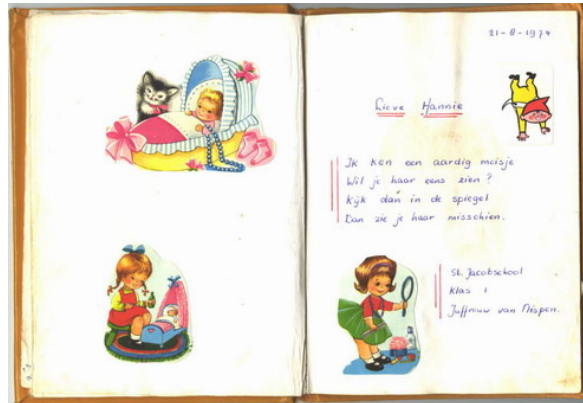 21-8-1974
Lieve Hannie
Ik ken een aardig meisje
Wil je haar eens zien?
Kijk dan in de spiegel
Dan zie je haar misschien.
St. Jacobschool
Klas 1
Juffrouw van Nispen.